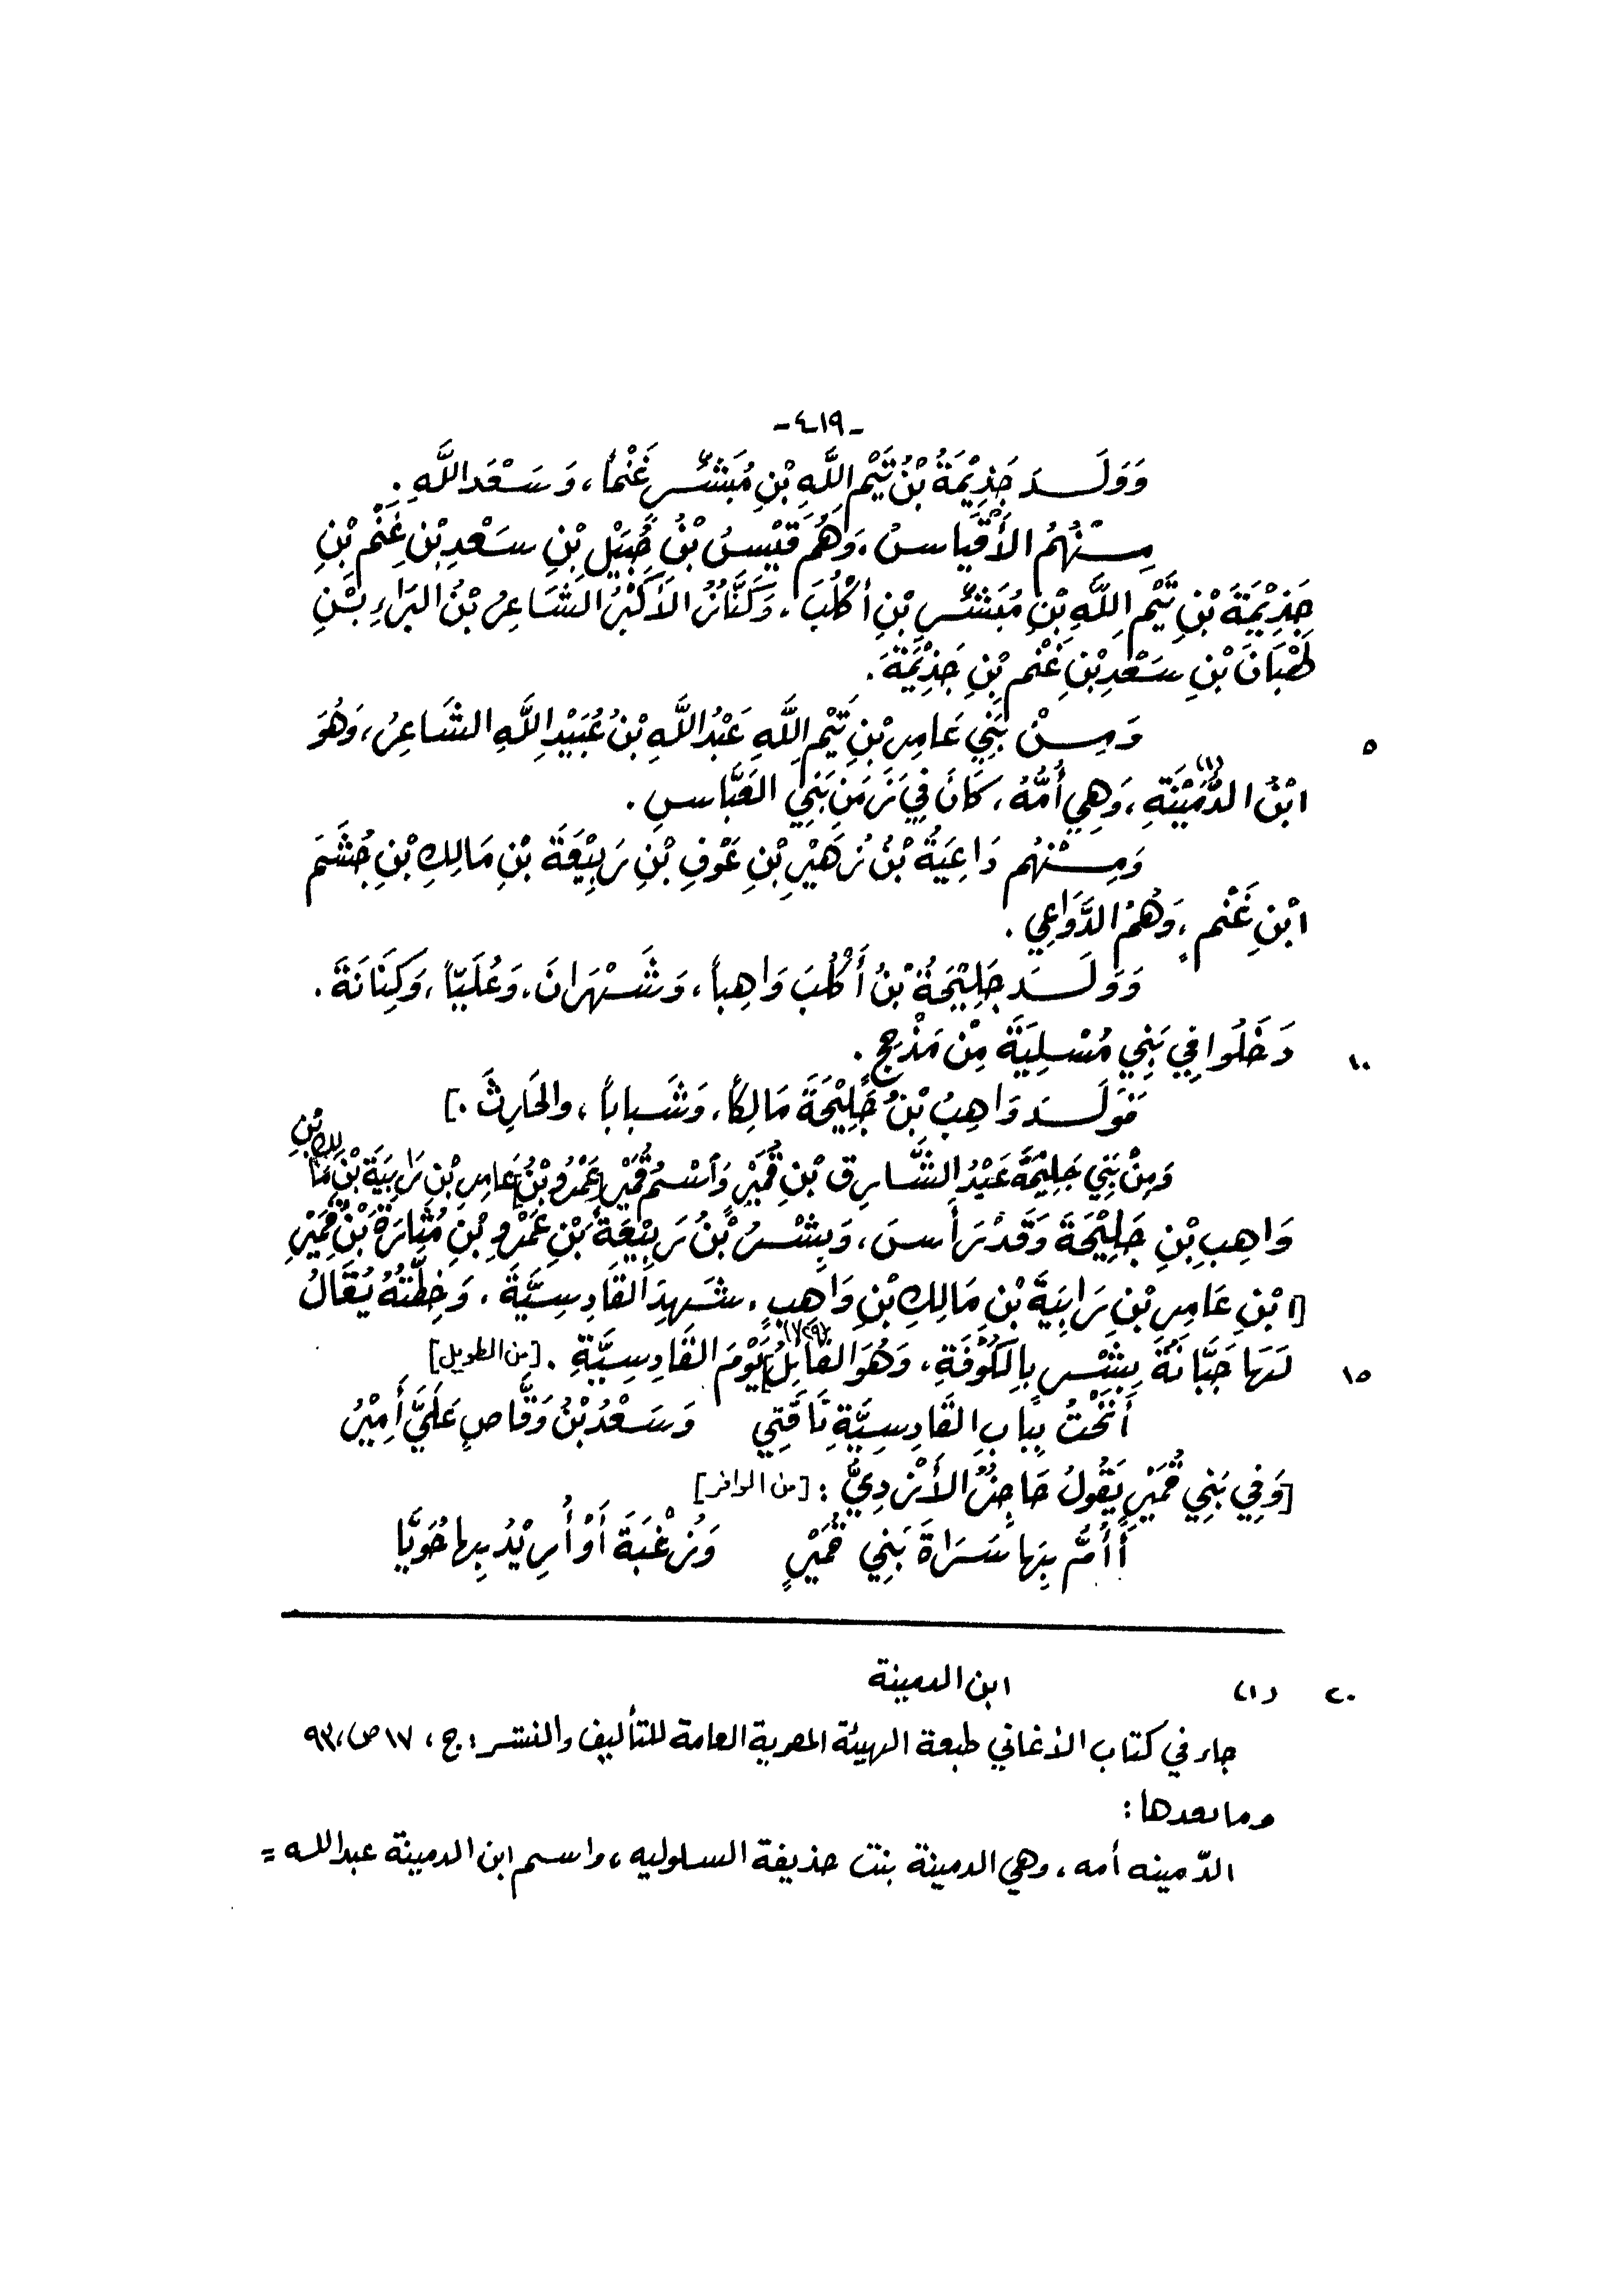 -٤١٩-
وَوَلَـــدَ جَذِيْمَةُ بْنُ تَيْمِ اللَّهِ بْنِ مُبَشِّرٍ غَنْماً، وَسَعْدَ اللَّهِ.
مِـنْهُمُ الأَقْيَاسُ، وَهُمْ قَيْسُ بْنُ جُبَيْلِ بْنِ سَعْدِ بْنِ غَنْمِ بْنِ
جَذِيْمَةَ بْنِ تَيْمِ اللَّهِ بْنِ مُبَشِّرِ بْنِ أَكْلُبَ، وَكَنَّازُ الأَكْبَرُ الشَّاعِرُ بْنُ البَرَاءِ بْنِ
ظَبْيَانَ بْنِ سَعْدِ بْنِ غَنْمِ بْنِ جَذِيْمَةَ.
٥ وَمِـنْ بَنِي عَامِرِ بْنِ تَيْمِ اللَّهِ عَبْدُ اللَّهِ بْنُ عُبَيْدِ اللَّهِ الشَّاعِرُ، وَهُوَ
ابْنُ الدُّمَيْنَةِ (١)، وَهِيَ أُمُّهُ، كَانَ فِي زَمَنِ بَنِي العَبَّاسِ.
وَمِـنْهُم دَاعِيَةُ بْنُ زُهَيْرِ بْنِ عَوْفِ بْنِ رَبِيْعَةَ بْنِ مَالِكِ بْنِ جُشَمَ
ابْنِ غَنْمٍ، وَهُمُ الدَّوَاعِي.
وَوَلَـــدَ جَلِيْحَةُ بْنُ أَكْلُبَ وَاهِباً، وَشَـهْرَانَ، وَعُلَيّاً، وَكِنَانَةَ.
١٠ دَخَلُوا فِي بَنِي مُسْلِيَةَ مِنْ مَذْحِجٍ.
فَوَلَـدَ وَاهِبُ بْنُ جَلِيْحَةَ مَالِكاً، وَشَـبَاباً، والحَارِثَ.]
وَمِنْ بَنِي جَلِيْحَةَ عَبْدُ الشَّارِقِ بْنِ قُمَيْرٍ وَاسْمُ قُمَيْرٍ [عَمْرُو بْنُ] عَامِرِ بْنِ رَابِيَةَ بْنِ مَالِكِ بْنِ
وَاهِبِ بْنِ جَلِيْحَةَ وَقَدْ رَأَسَ، وَبِشْرُ بْنُ رَبِيْعَةَ بْنِ عَمْرِو بْنِ مُنَارَةَ بْنِ قُمَيْرِ
[ا بْنِ عَامِرِ بْنِ رَابِيَةَ بْنِ مَالِكِ بْنِ وَاهِبٍ، شَـهِدَ القَادِسِيَّةَ، وَخِطَّتُهُ يُقَالُ
١٥ لَهَا جَبَّانَةُ بِشْرٍ بِالكُوْفَةِ، وَهُوَ القَائِلُ] يَوْمَ القَادِسِيَّةِ. [من الطويل]
أَنَخْتُ بِبَابِ القَادِسِيَّةِ نَاقَتِي وَسَعْدُ بْنُ وَقَّاصٍ عَلَيَّ أَمِيْرُ
[وَفِي بَنِي قُمَيْرٍ يَقُولُ حَاجِزٌ الأَزْدِيُّ : [من الوافر]
أَأُمُّ بِهَا سَـرَاةَ بَنِي قُمَيْرٍ وَزُغْبَةَ أَوْ أُرِيْدُ بِها حُوَيَّا
٢٠ (١) ابن الدمينة
جاء في كتاب الأغاني طبعة الهيئة المصرية العامة للتأليف والنشر: ج، ١٧ ص، ٩٣
وما بعدها:
الدّمينه أمه، وهي الدمينة بنت حذيفة السلوليه، واسم ابن الدمينة عبد الله =